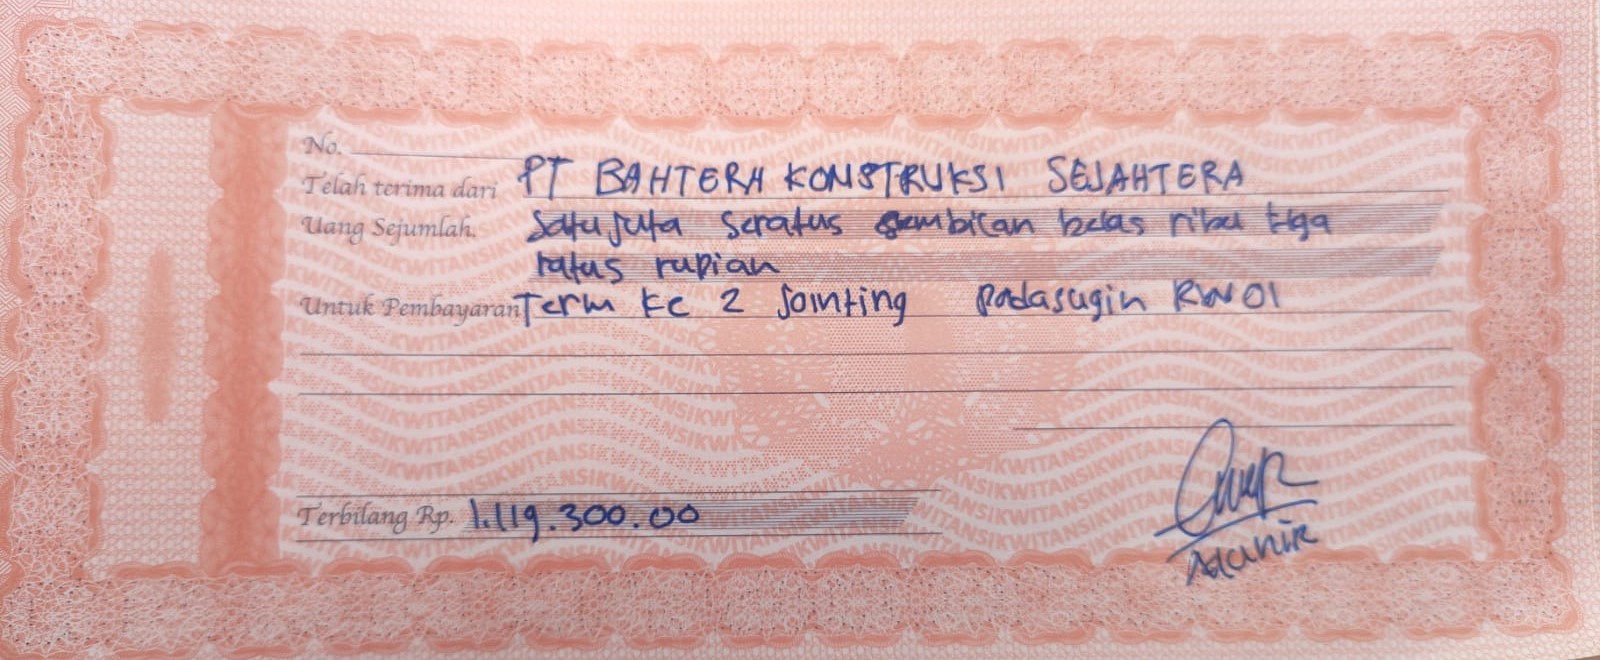 No.
Telah terima dari PT BAHTERA KONSTRUKSI SEJAHTERA
Uang Sejumlah. Satu juta seratus sembilan belas ribu tiga
ratus rupiah
Untuk Pembayaran Term ke 2 Jointing Padasugih RW 01
Terbilang Rp. 1.119.300.00